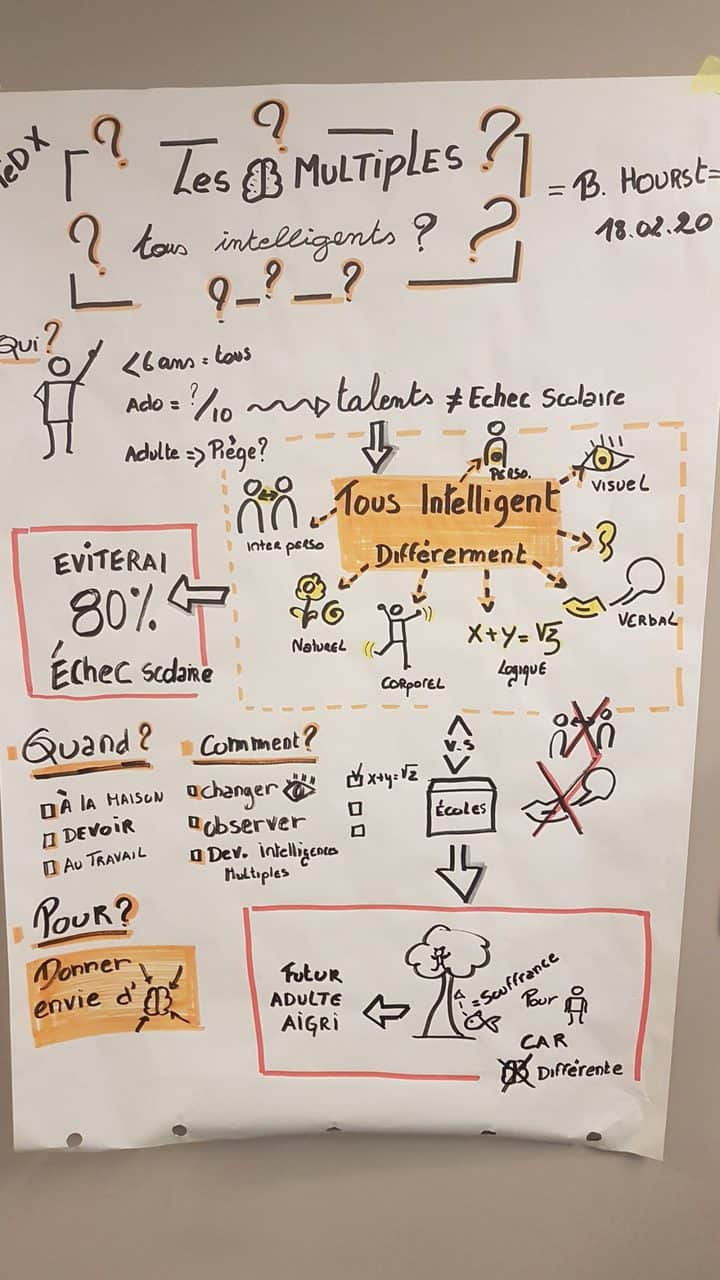 TEDX
? Les MULTIPLES ?
?
? tous intelligents ? ?
? _ ? _ ?
= B. HOURST =
18.02.20
Qui ?
<6 ans = tous
Ado = ?/10 talents ≠ Echec Scolaire
Adulte => Piège ?
PERSO.
VISUEL
INTER PERSO
Tous Intelligent
Différerment
VERBAL
Naturel
CORPOREL
X+Y=√3
Logique
EVITERAI
80%
Échec scolaire
Quand ?
À LA MAISON
DEVOIR
AU TRAVAIL
Comment ?
changer
observer
Dev. intelligences
Multiples
x+y=√2
V.S
Écoles
Pour ?
Donner
envie d'
Futur
ADULTE
AIGRI
= Souffrance
Pour
CAR
Différente